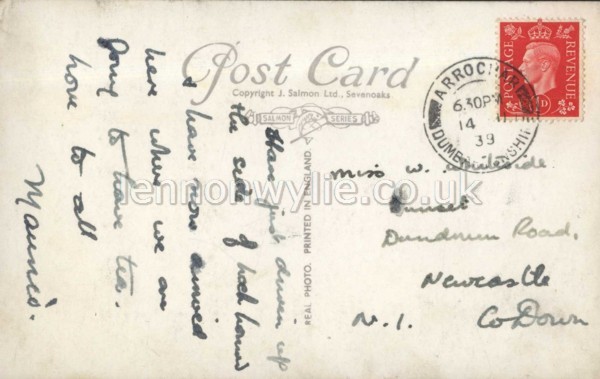 Post Card
Copyright J. Salmon Ltd., Sevenoaks
SALMON SERIES
Have just driven up
the side of Loch Lomond
& have now arrived
here where we are
going to have tea.
love to all
Maurice.
REAL PHOTO. PRINTED IN ENGLAND.
POSTAGE REVENUE
1D
ARROCHAR
6.30PM
14
39
DUMBARTONSHIRE
Miss W. Whiteside
Sunset
Dundrum Road,
Newcastle
Co Down
N.I.
lennonwylie.co.uk